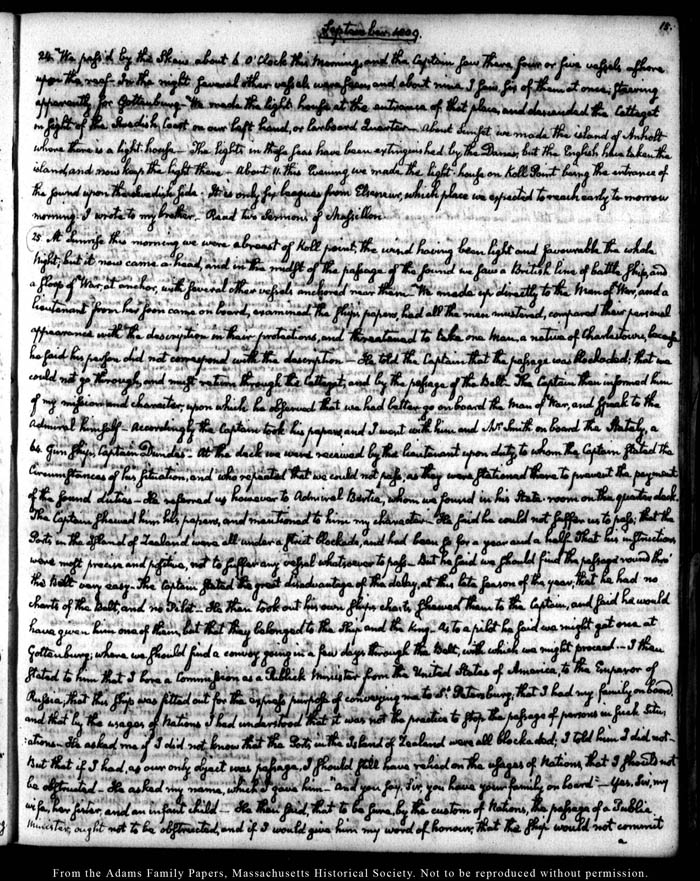 September 1809.
18.
24. We pass'd by the Skaw about 6 O'Clock this Morning, and the Captain saw there four or five vessels ashore
upon the reef. In the night several other vessels were seen and about nine I saw six of them at once, steering
apparently for Gottenburg. We made the light-house, at the entrance of that place, and descended the Cattegat
in sight of the Swedish Coast on our left hand, or larboard Quarter. About Sunset we made the island of Anholt
where there is a light-house. The lights in these seas have been extinguished by the Danes, but the English have taken the
island, and now keep the light there. About 11. this Evening we made the light-house on Koll Point being the entrance of
the Sound upon the Swedish side. It is only six leagues from Elseneur, which place we expected to reach early to morrow
morning. I wrote to my brother. Read two Sermons of Massillon.
25. At Sunrise this morning we were abreast of Koll point; the wind having been light and favourable the whole
Night; but it now came a-head, and in the midst of the passage of the Sound we saw a British line of battle Ship, and
a Sloop of War, at anchor, with several other vessels anchored near them. We made up directly to the Man of War, and a
lieutenant from her soon came on board, examined the Ship's papers, had all the men mustered, compared their personal
appearance with the description in their protections, and threatened to take one Man, a native of Charlestown, because
he said his person did not correspond with the description. He told the Captain that the passage was blockaded; that we
could not go through, and must return through the Cattegat, and by the passage of the Belt. The Captain then informed him
of my mission and character; upon which he observed that we had better go on board the Man of War, and speak to the
Admiral himself. Accordingly the Captain took his papers, and I went with him and Mr. Smith on board the Stately, a
64. Gun Ship, Captain Dundas. At the deck we were received by the lieutenant upon duty, to whom the Captain stated the
Circumstances of his situation, and who repeated that we could not pass, as they were stationed there to prevent the payment
of the Sound duties. He referred us however to Admiral Bertie, whom we found in his State room on the quarter deck.
The Captain shewed him his papers, and mentioned to him my character. He said he could not suffer us to pass; that the
Ports in the Island of Zealand were all under a strict blockade, and had been so for a year and a half. That his instructions
were most precise and positive, not to suffer any vessel whatsoever to pass. But he said we should find the passage round thro'
the Belt very easy. The Captain stated the great disadvantage of the delay, at this late season of the year, that he had no
charts of the Belt, and no Pilot. He then took out his own Ship's charts, shewed them to the Captain, and said he would
have given him one of them, but that they belonged to the Ship and the King. As to a pilot he said we might get one at
Gottenburg; where we should find a convoy going in a few days through the Belt, with which we might proceed. I then
stated to him that I bore a Commission as a Publick Minister from the United States of America, to the Emperor of
Russia; that this Ship was fitted out for the express purpose of conveying me to St. Petersburg; that I had my family on board
and that by the usages of Nations I had understood that it was not the practice to stop the passage of persons in such Situ-
:ations. He asked me if I did not know that the Ports in the Island of Zealand were all blockaded; I told him I did not.
But that if I had, as our only object was passage, I should still have relied on the usages of Nations, that I should not
be obstructed. He asked my name, which I gave him. And you say, Sir, you have your family on board? Yes, Sir, my
wife, her sister, and an infant child. He then said, that to be sure, by the custom of Nations, the passage of a Public
Minister, ought not to be obstructed, and if I would give him my word of honour, that the Ship would not commit
a
From the Adams Family Papers, Massachusetts Historical Society. Not to be reproduced without permission.